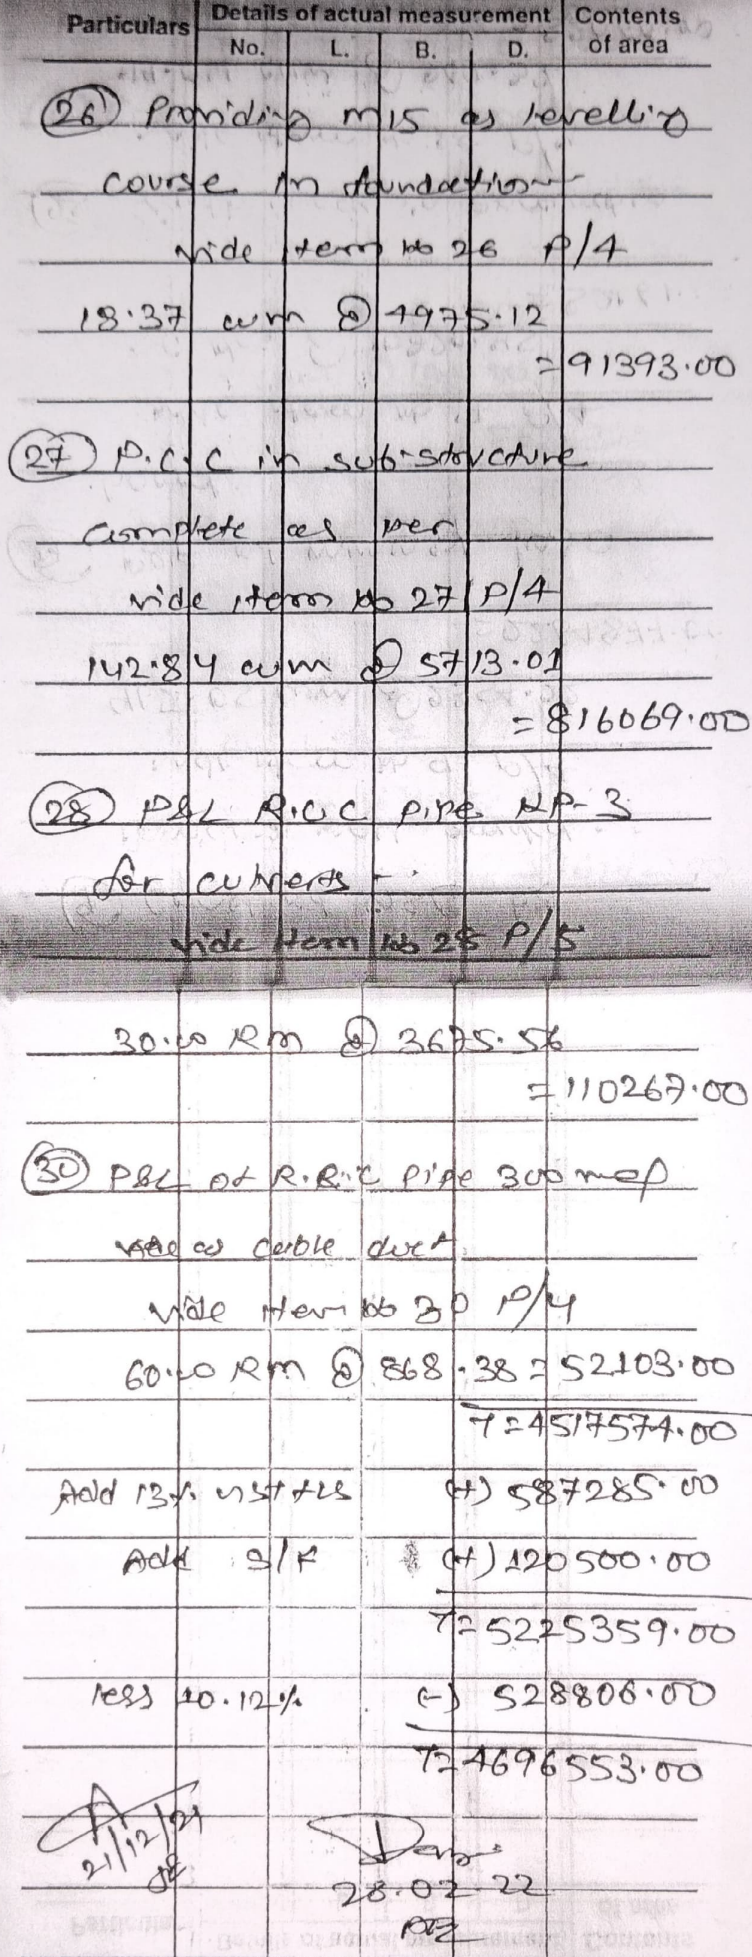 Particulars Details of actual measurement Contents of area
No. L. B. D.
(26) Providing M15 as levelling
course in foundation
vide item No 26 P/4
18.37 cum @ 4975.12
=91393.00
(27) P.C.C in sub-structure
complete as per
vide item No 27 P/4
142.84 cum @ 5713.01
=816069.00
(28) P&L R.C.C Pipe NP-3
for culverts -
vide item No 28 P/5
30.00 RM @ 3675.56
=110267.00
(30) P&L of R.C.C Pipe 300
as cable duct
vide item No 30 P/4
60.00 RM @ 868.38 = 52103.00
T=4517574.00
Add 13%
(+) 587285.00
Add S/F (+) 120500.00
T=5225359.00
less 10.12% (-) 528806.00
T=4696553.00
21/12/21
JE
28.02.22